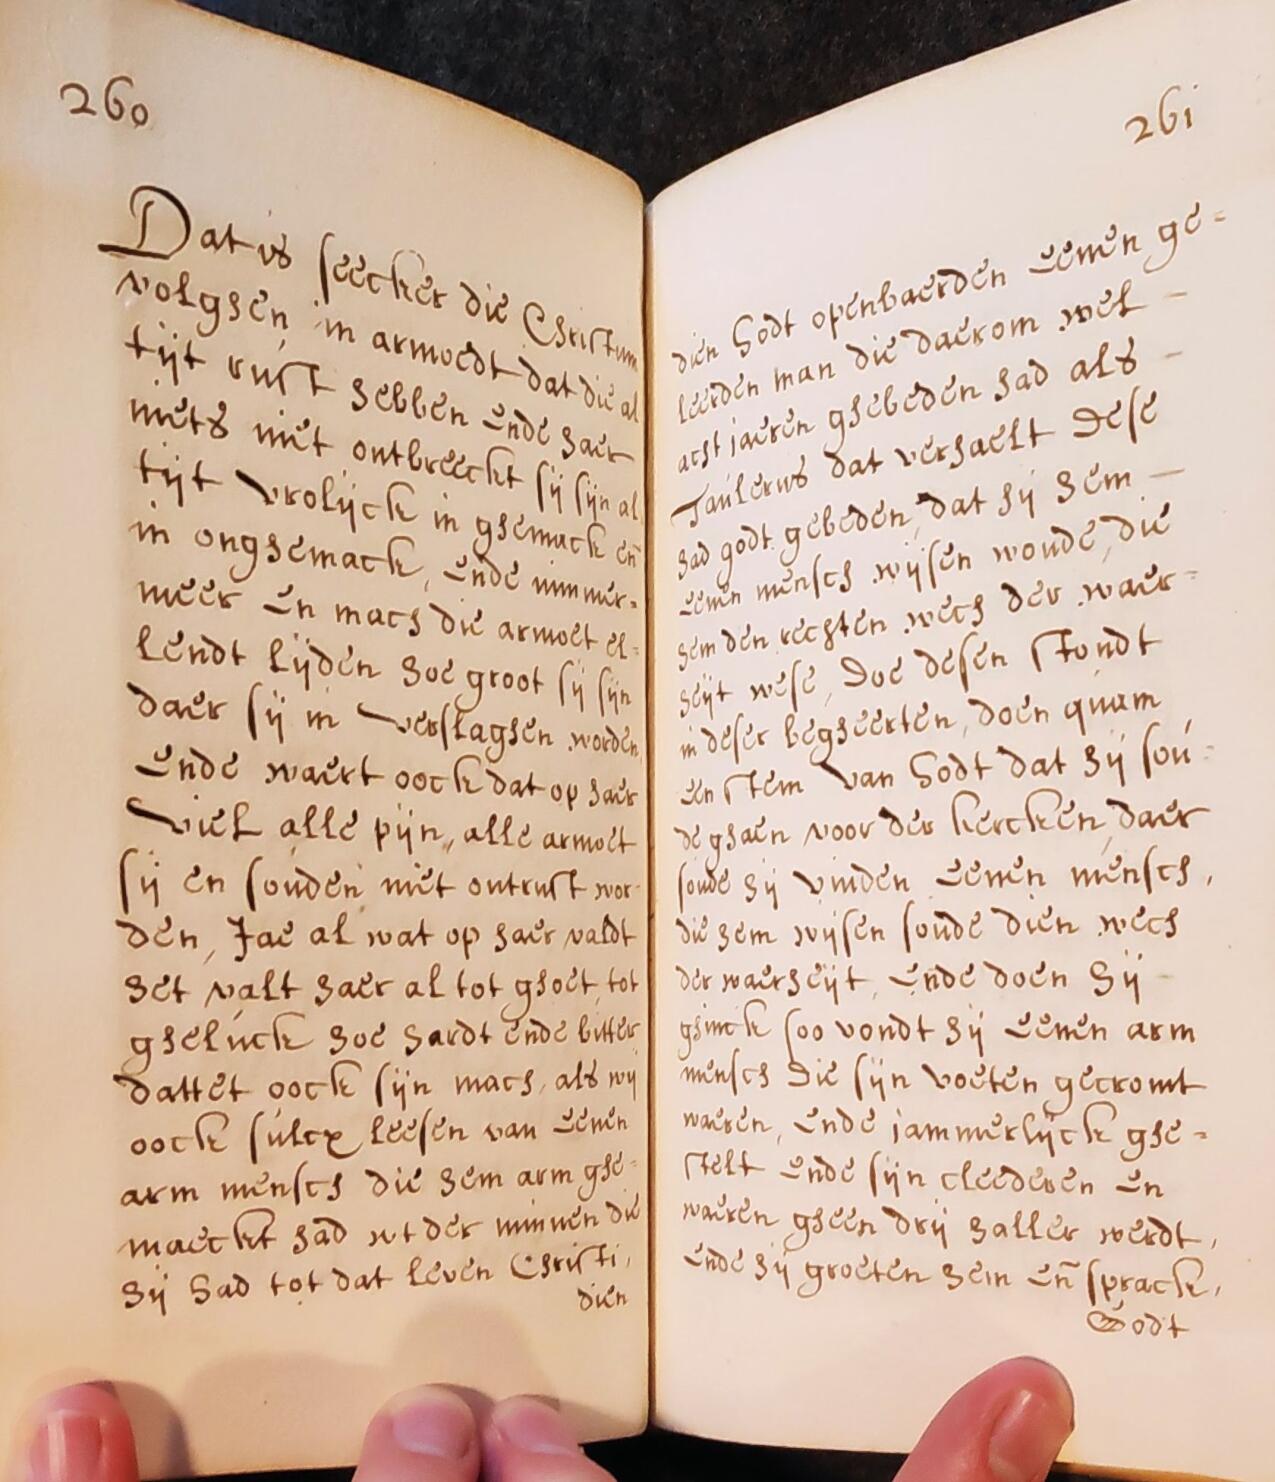 260
Dat is seecker die Christum
volghen in armoedt dat die al
tijt rust hebben ende haer
niets niet ontbreeckt sij sijn al
tijt vrolijck in ghemack en̄
in onghemack, ende nimmer=
meer en mach die armoet el=
lendt lijden hoe groot sij sijn
daer sij in verslaghen worden
ende waert oock dat op haer
viel alle pijn, alle armoet
sij en souden niet ontrust wor-
den, Jae al wat op haer valdt
het valt haer al tot ghoet, tot
gheluck hoe hardt ende bitter
dattet oock sijn mach, als wij
oock sulcx leesen van eenen
arm mensch die hem arm ghe=
maeckt had wt der minnen die
hij had tot dat leven Christi,
dien
261
dien Godt openbaerden eenen ge=
leerden man die daerom wel —
acht jaeren ghebeden had als —
Taulerus dat verhaelt Dese
had godt gebeden, dat hij hem —
eenen mensch wijsen woude, die
hem den rechten wech der waer=
heijt wese, Doe desen stondt
in deser begheerten, doen quam
een stem van Godt dat hij sou=
de ghaen voor der kercken, daer
soude hij vinden eenen mensch,
die hem wijsen soude dien wech
der waerheijt, ende doen hij
ghinck soo vondt hij eenen arm
mensch Die sijn voeten gecromt
waeren, ende jammerlijck ghe=
stelt ende sijn cleederen en
waeren gheen drij haller werdt,
ende hij groeten hem en̄ sprack,
Godt